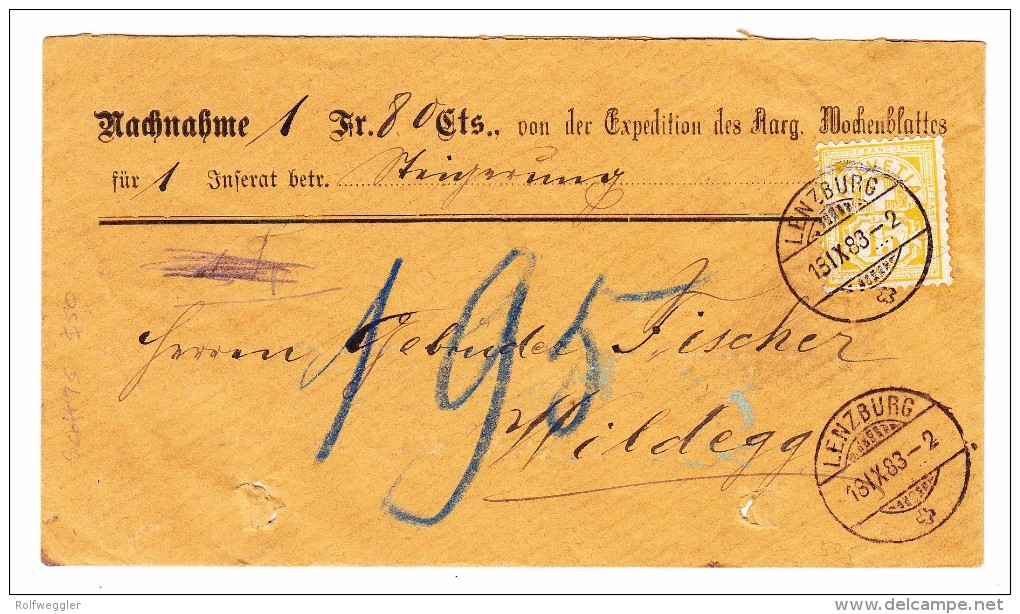 Nachnahme 1 Fr. 80 Cts., von der Expedition des Aarg. Wochenblattes
für 1 Inserat betr. Steigerung
FRANCO
HELVETIA
15
LENZBURG
18 IX 83 – 2
195
Herren Gebrüder Fischer
Wildegg
LENZBURG
18 IX 83 – 2
Rolfweggler
www.delcampe.net